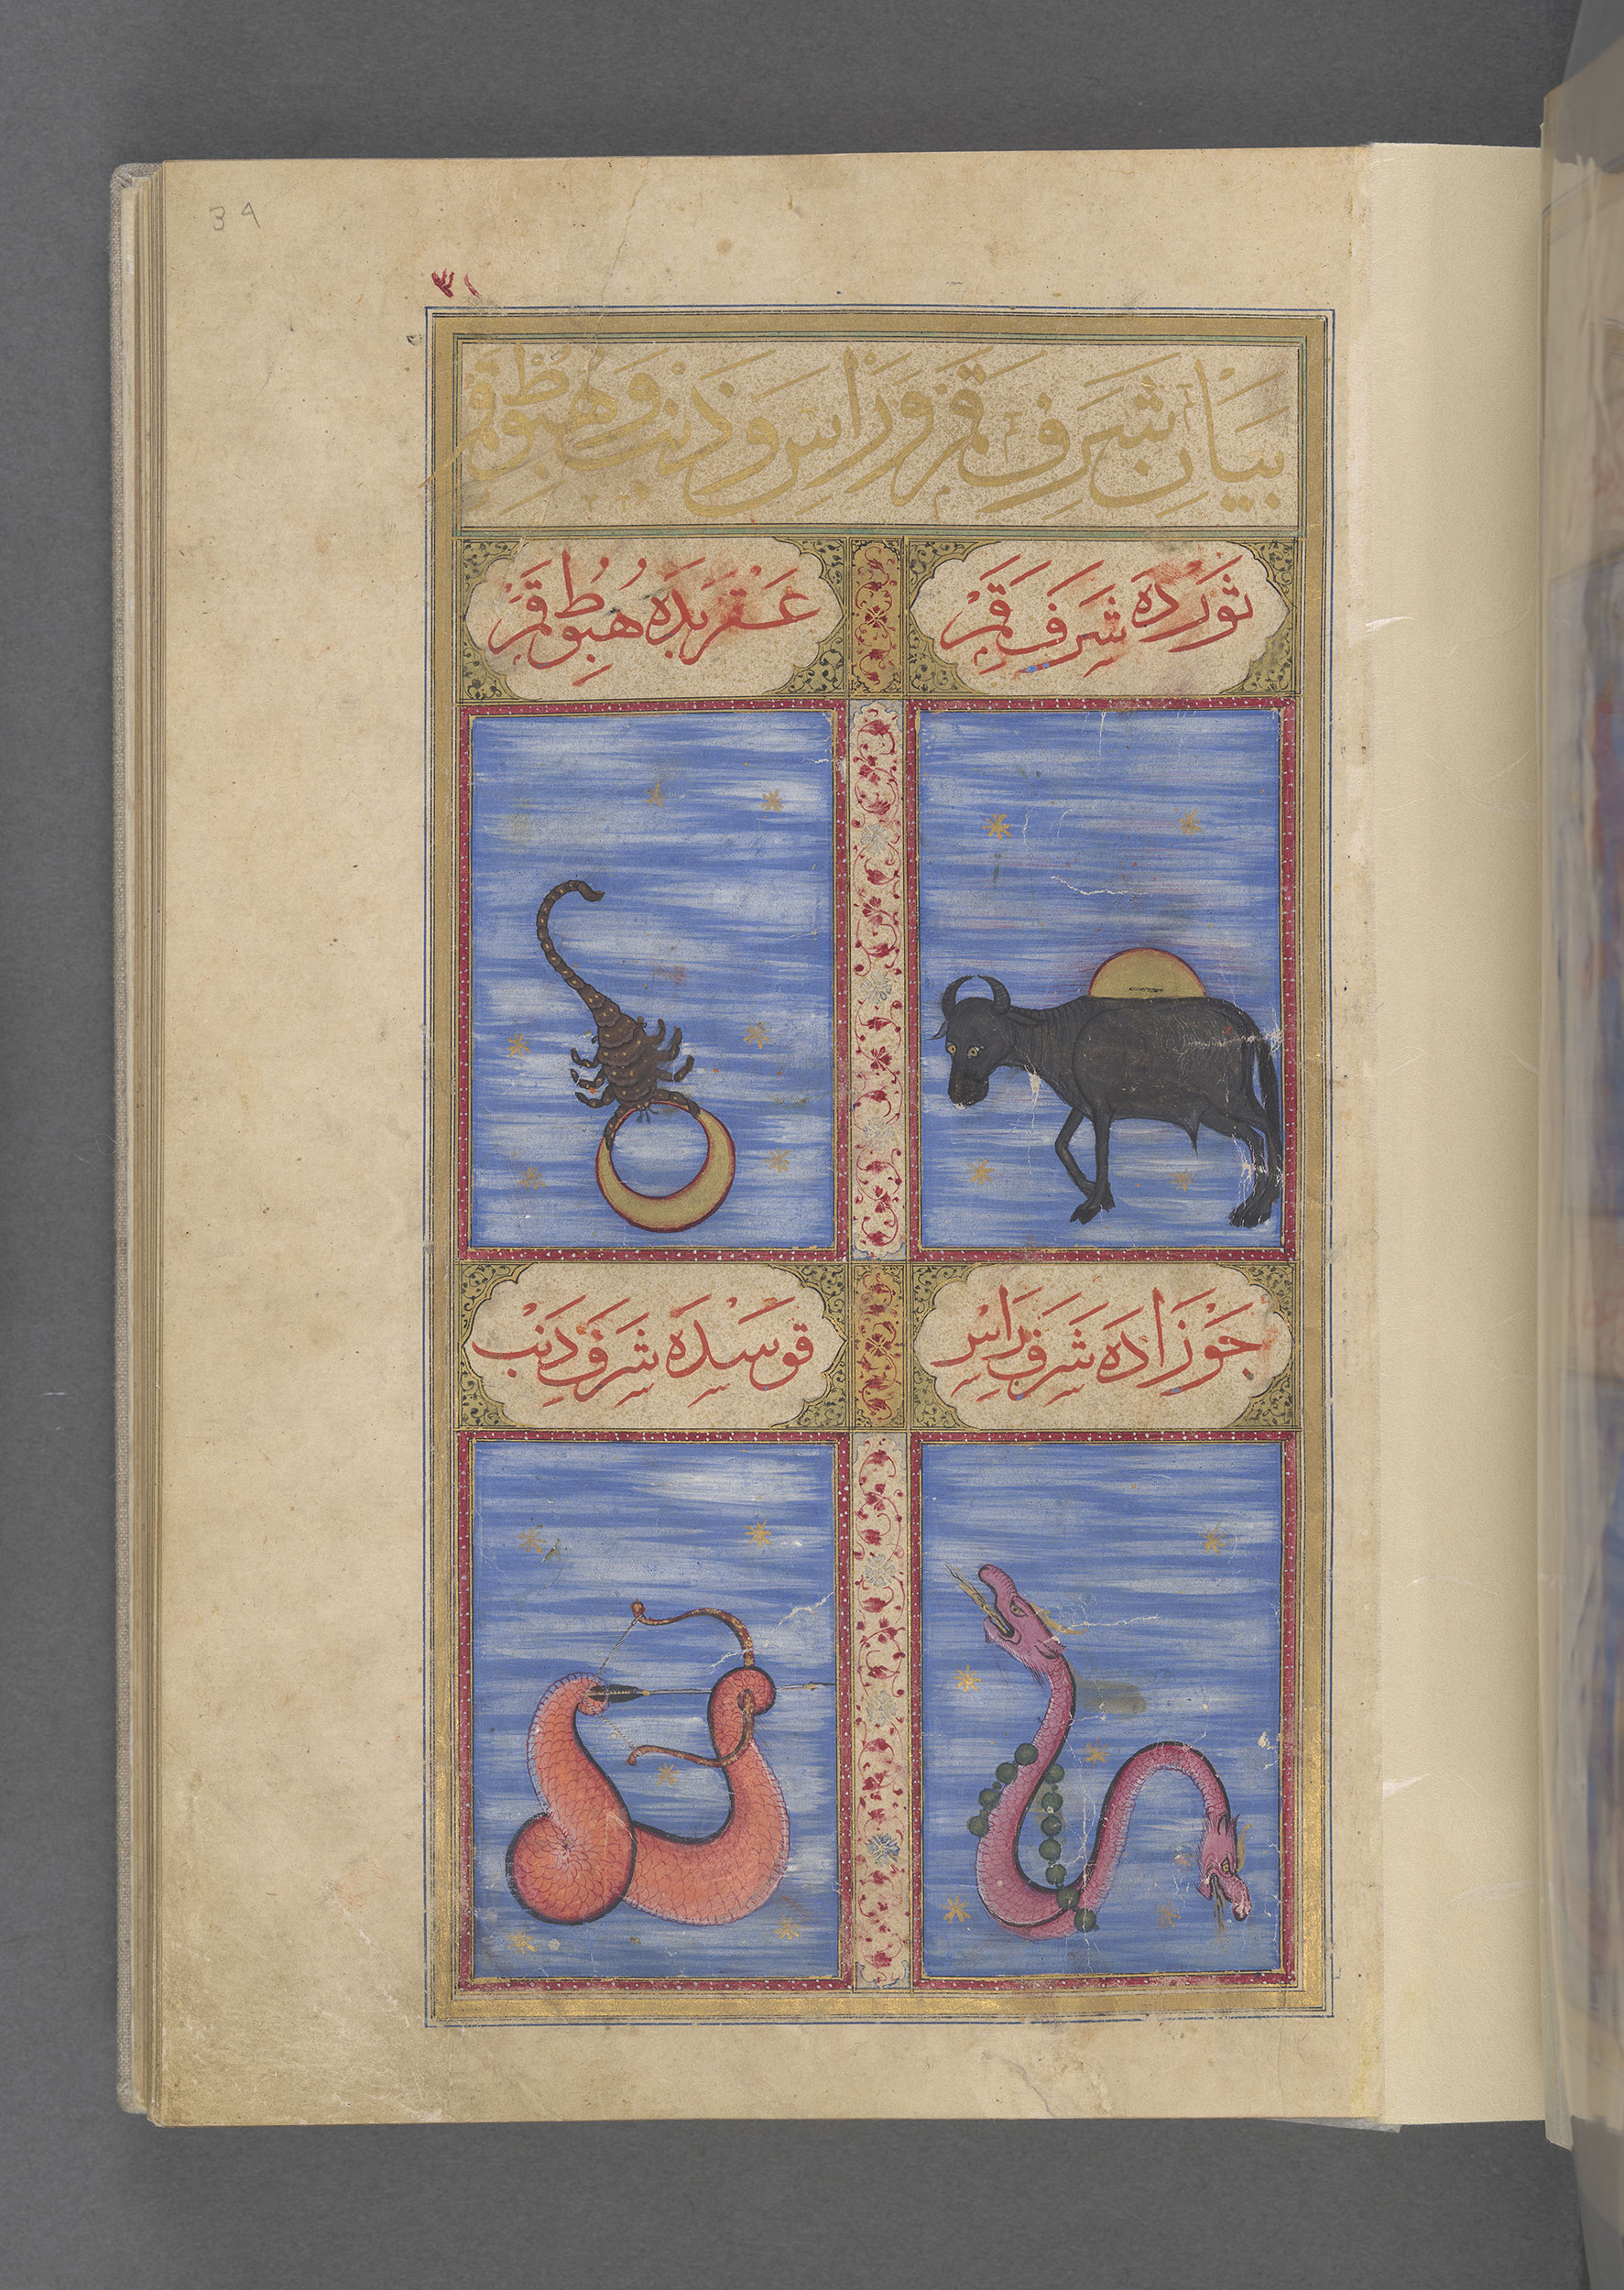 34
٣١
بَيَانِ شَرَفِ قَمَر وَرَاْس وَذَنَبْ وَهُبُوطِ قَمَر
ثَوْردَه شَرَفِ قَمَرْ
عَقْرَبدَه هُبُوطِ قَمَرْ
جَوْزَادَه شَرَفِ رَاسْ
قوسْدَه شَرَفِ ذَنَبْ